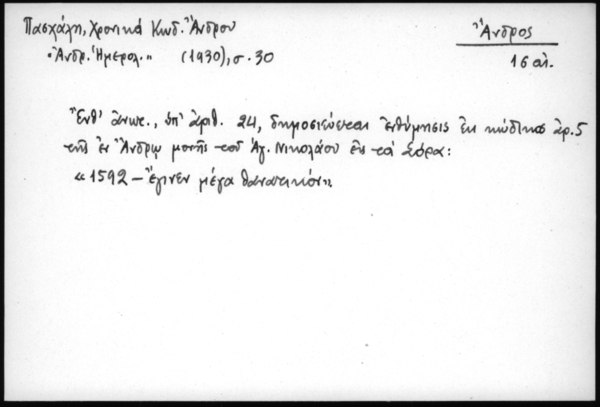 Πασχάλη, Χρονικά Κωδ. Ἄνδρου
Ἄνδρος
"Ἀνδρ. Ἡμερολ." (1930), σ. 30
16 αἰ.
Ἔνθ' ἄνωτ., ὑπ' ἀριθ. 24, δημοσιεύεται ἐνθύμησις ἐκ κώδικος ἀρ. 5
τῆς ἐν Ἄνδρῳ μονῆς τοῦ Ἁγ. Νικολάου εἰς τὰ Σόρα:
«1592 – Ἔγινεν μέγα θανατικόν»